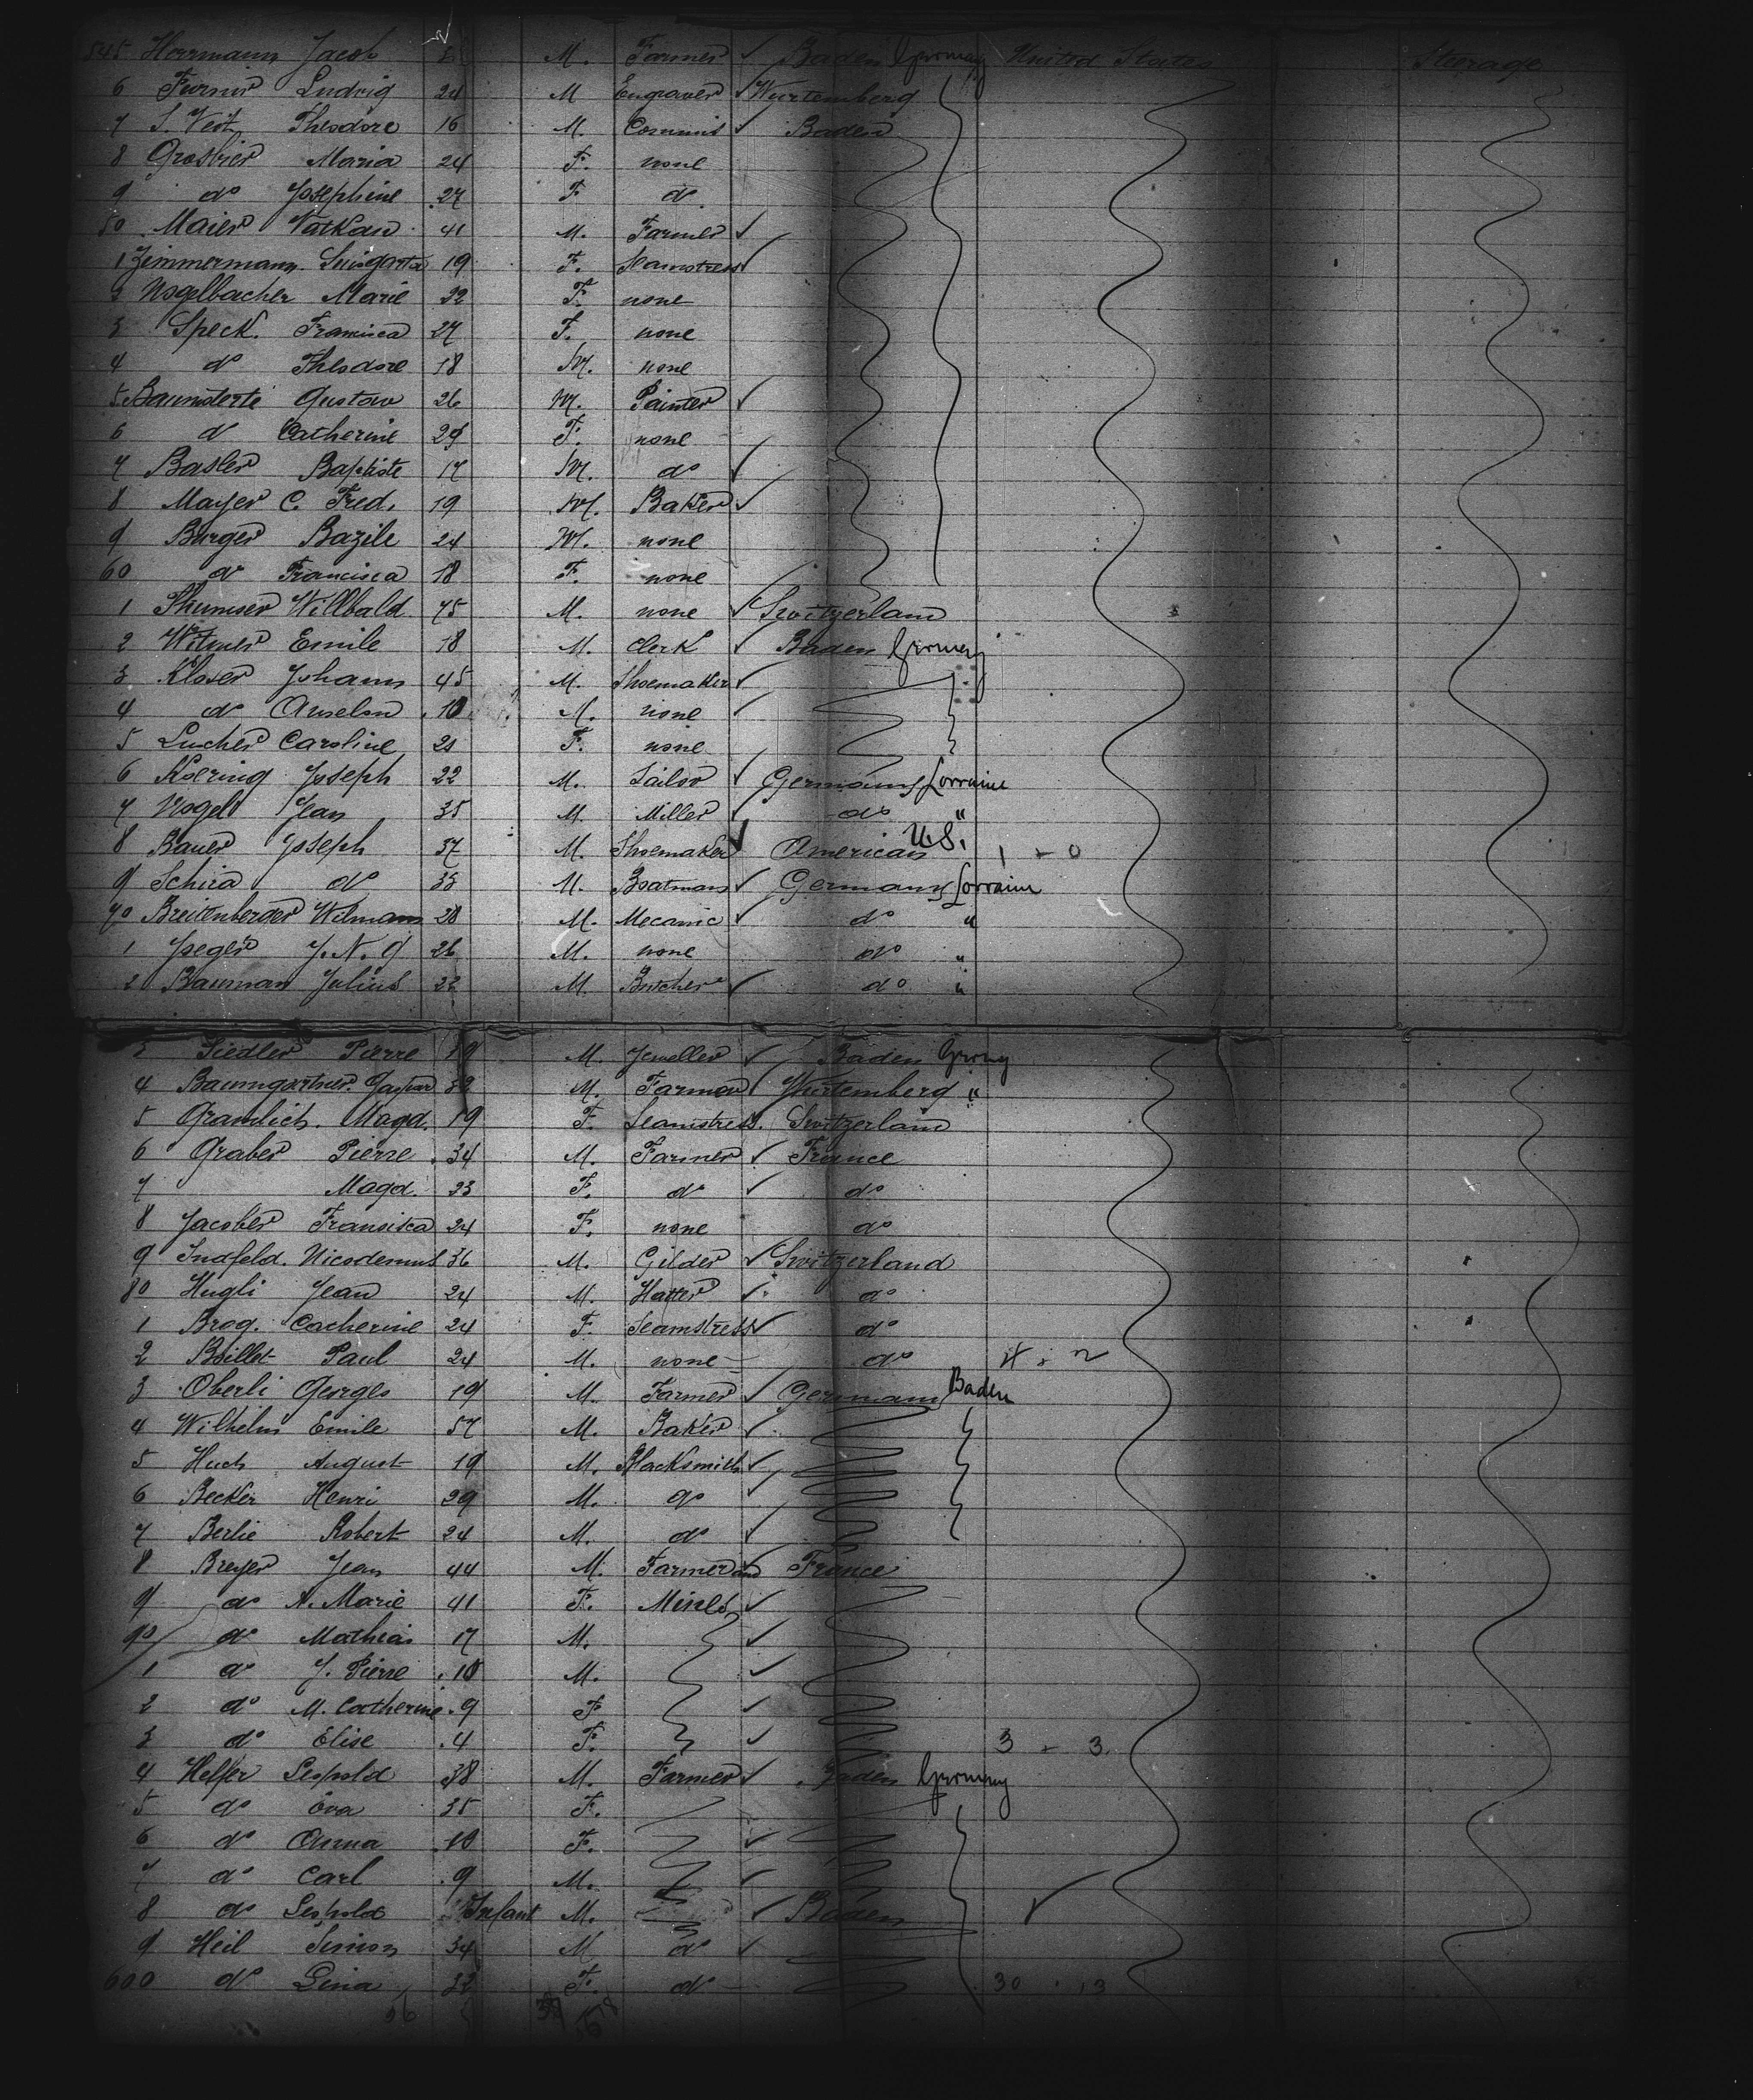 545 Herrmann Jacob M. Farmer ✓ Baden Germany United States Steerage
6 Furner Ludwig 24 M Engraver ✓ Wurtemberg
7 S. Veit Theodore 16 M. Commis ✓ Baden
8 Grosbier Maria 24 F. none
9 do Josephine 27 F do.
50 Maier Natkan 41 M. Farmer ✓
1 Zimmermann 19 F. Seamstress ✓
2 Vogelbacher Marie 32 F. none
3 Speck. Francisca 27 F. none
4 do Theodore 18 M. none
5 Gustav 26 M. Painter ✓
6 do Catherine 29 F. none
7 Basler Baptiste 17 M. do ✓
8 Mayer C. Fred. 19 M. Baker ✓
9 Burger Bazile 24 M. none
60 do Francisca 18 F. none
1 Willbald 75 M. none ✓ Switzerland
2 Witmer Emile 18 M. Clerk ✓ Baden Germany
3 Kloser Johann 45 M. Shoemaker ✓
4 do Anselm 10 M. none ✓
5 Luscher Caroline 21 F. none
6 Koering Joseph 22 M. Tailor ✓ Germany Lorraine
7 Vogelt Jean 35 M. Miller ✓ do "
8 Bauer Joseph 37 M. Shoemaker ✓ American U.S. 1 - 0
9 Schira do 33 M. Boatman ✓ Germany Lorraine
70 Breitenberger 28 M. Mecanic ✓ do "
1 Jseger J. N. 26 M. none do "
2 Bauman Julius 22 M. Butcher ✓ do "
3 Siedler Pierre 19 M. Jeweller ✓ Baden Germany
4 Baumgartner. Gaspar 32 M. Farmer ✓ Wurtemberg "
5 Gramlich. Magd. 19 F. Seamstress. Switzerland
6 Graber Pierre 34 M. Farmer ✓ France
7 Magd. 23 F. do ✓ do
8 Jacober Fransisca 24 F. none do
9 Indfeld. Nicodemus 36 M. Gilder ✓ Switzerland
80 Hugli Jean 24 M. Hatter ✓ do
1 Brog. Catherine 24 F. Seamstress ✓ do
2 Boillet Paul 24 M. none do
3 Oberli Georges 19 M. Farmer ✓ Germany Baden
4 Wilhelm Emile 57 M. Baker ✓
5 Huch August 19 M. Blacksmith ✓
6 Becker Henri 29 M. do ✓
7 Berlie Robert 24 M. do ✓
8 Breyer Jean 44 M. Farmer and ✓ France
9 do A. Marie 41 F. Miner ✓
90 do Mathias 17 M. ✓
1 do J. Pierre 10 M. ✓
2 do M. Catherine 9 F ✓
3 do Elise 4 F. ✓ 3 - 3
4 Helfer Leopold 38 M. Farmer ✓ Baden Germany
5 do Eva 35 F.
6 do Anna 10 F. ✓
7 do Carl 9 M. ✓
8 do Leopold Infant M. ✓ Baden ✓
9 Heil Simon 34 M do ✓
600 do Lina 32 F. do 30 13
56